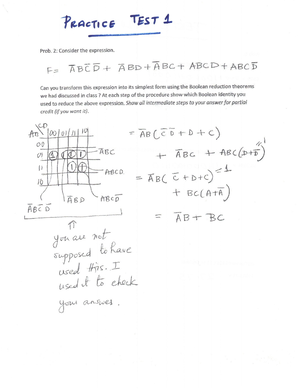 PRACTICE TEST 1
Prob. 2: Consider the expression.
F= A̅BC̅D̅ + A̅BD + A̅BC + ABCD + ABCD̅
Can you transform this expression into its simplest form using the Boolean reduction theorems
we had discussed in class? At each step of the procedure show which Boolean identity you
used to reduce the above expression. Show all intermediate steps to your answer for partial
credit (if you want it).
= A̅B(C̅D̅ + D + C)
+ A̅BC + ABC(D+D̅) =1
= A̅B(C̅ + D + C) =1
+ BC(A+A̅)
= A̅B + BC
CD
AB 00 01 11 10
00
01 1 1 1 1
11 1 1
10
A̅BC
ABCD
A̅BD ABCD̅
A̅BC̅D̅
⇑
you are not
supposed to have
used this. I
used it to check
your answer.